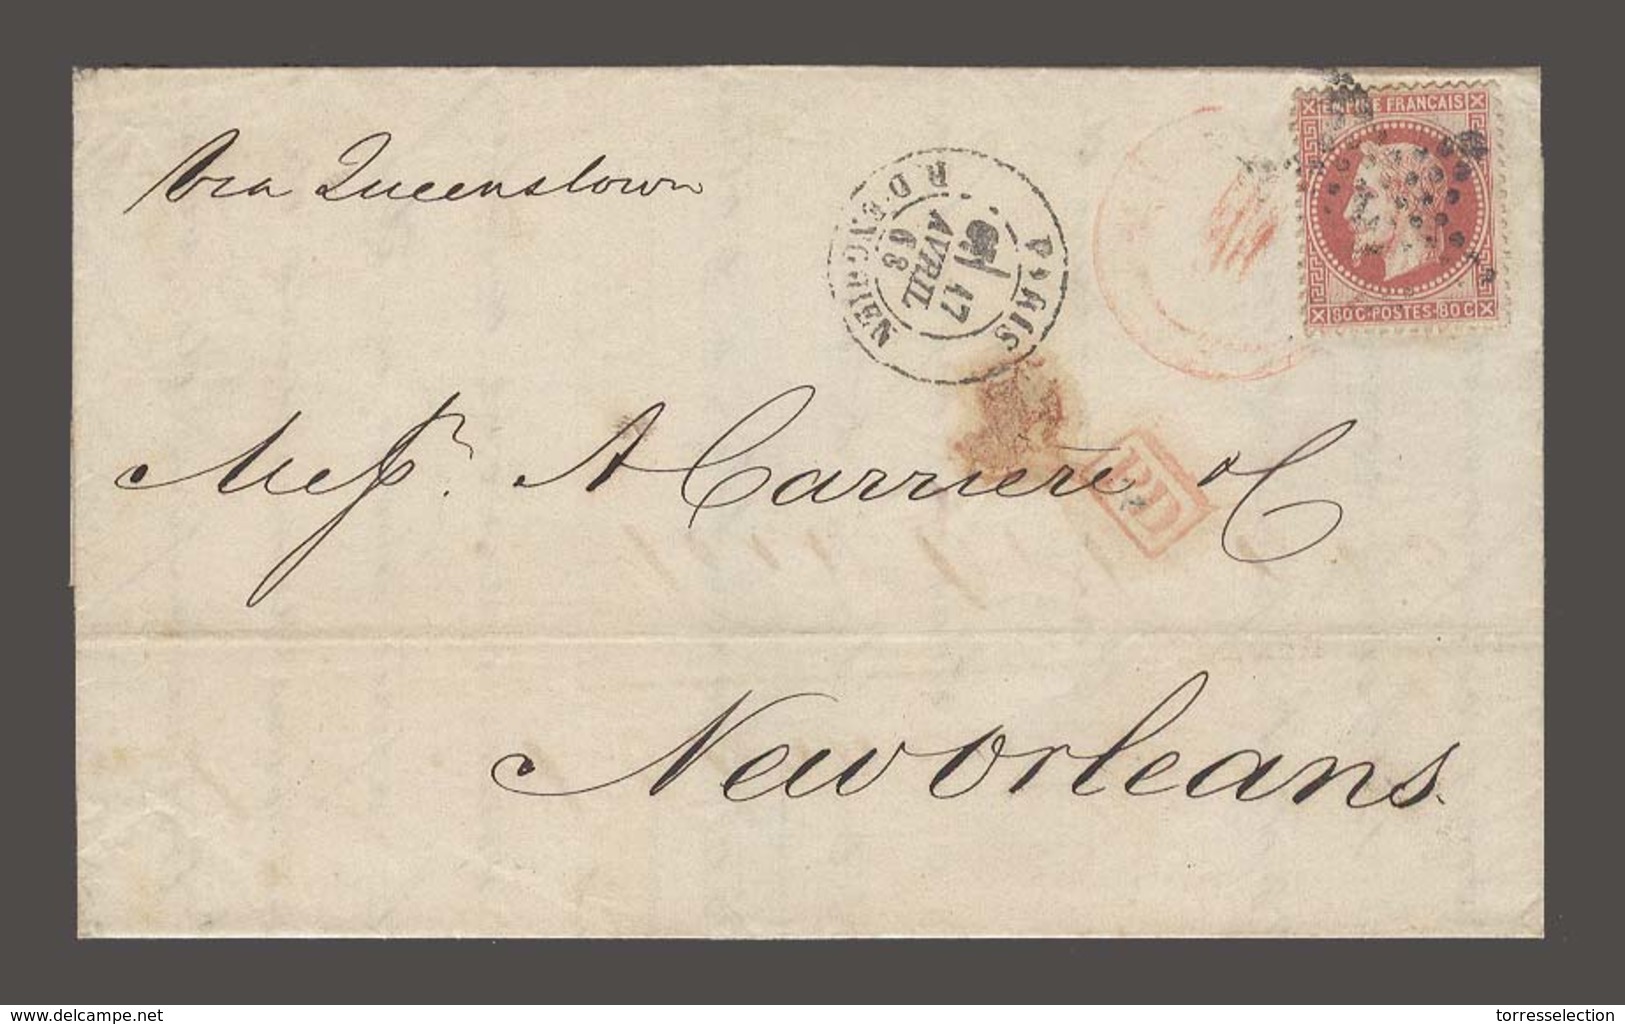 Via Queenstown
EMPIRE FRANÇAIS
80 C·POSTES·80 C
PARIS
17
AVRIL
68
R.D'ENGHIEN
PD
Mess. A Carriere & C.
New Orleans.
www.delcampe.net
torresselection